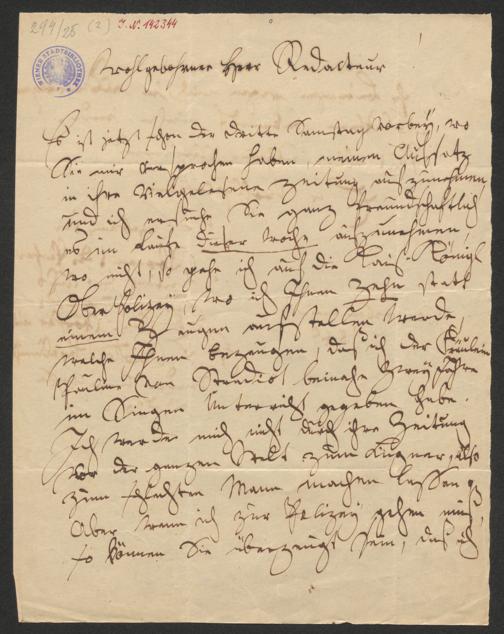 294/25 (2) J. N. 142344
WIENER STADTBIBLIOTHEK
Wohlgebohrner Herr Redacteur!
Es ist jetzt schon der dritte Samstag vorbey, wo
Sie mir versprochen haben, meinen Aufsatz
in ihre Vielgelesene Zeitung aufzunehmen,
und ich ersuche Sie ganz freundschaftlich
es im Laufe dieser Woche aufzunehmen
wo nicht, so gehe ich auf die Kais. Königl
Ober Polizey, wo ich Ihnen Zehn statt
einem Zeugen aufstellen werde,
welche Ihnen bezeugen, daß ich der Fräulein
Pauline von beinahe Zwey Jahre
im Singen Unterricht gegeben habe.
Ich werde mich nicht durch ihre Zeitung
vor der ganzen Welt zum Lügner, also
zum schlechten Mann machen lassen
Aber wenn ich zur Polizey gehen muß,
so können Sie überzeugt sein, daß ich